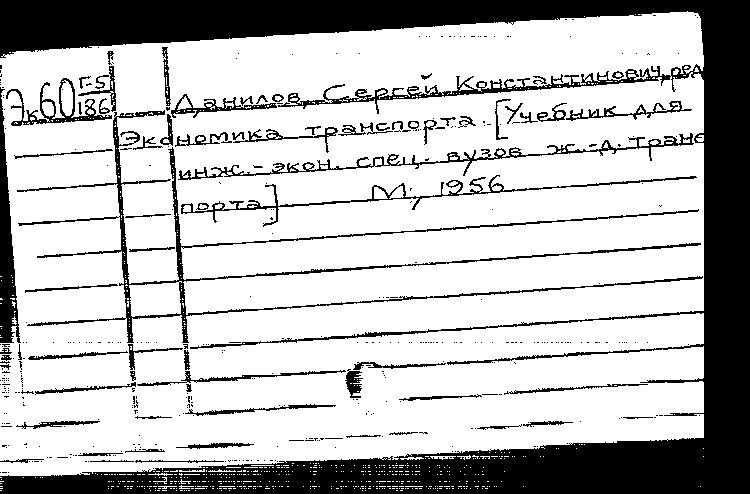 Эк60 Г-5/186
Данилов, Сергей Константинович, ред
Экономика транспорта. [Учебник для
инж.-экон. спец. вузов ж.-д. транс
порта.] М., 1956